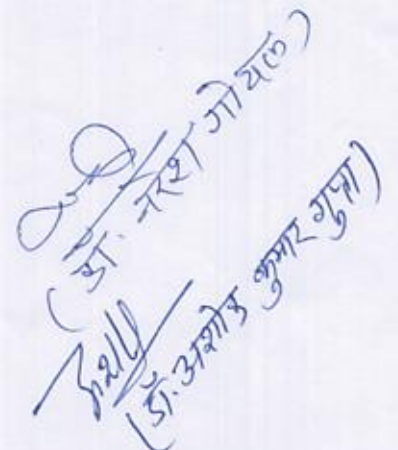 (डॉ. नरेश गोयल)
अशोक
(डॉ. अशोक कुमार गुप्ता)